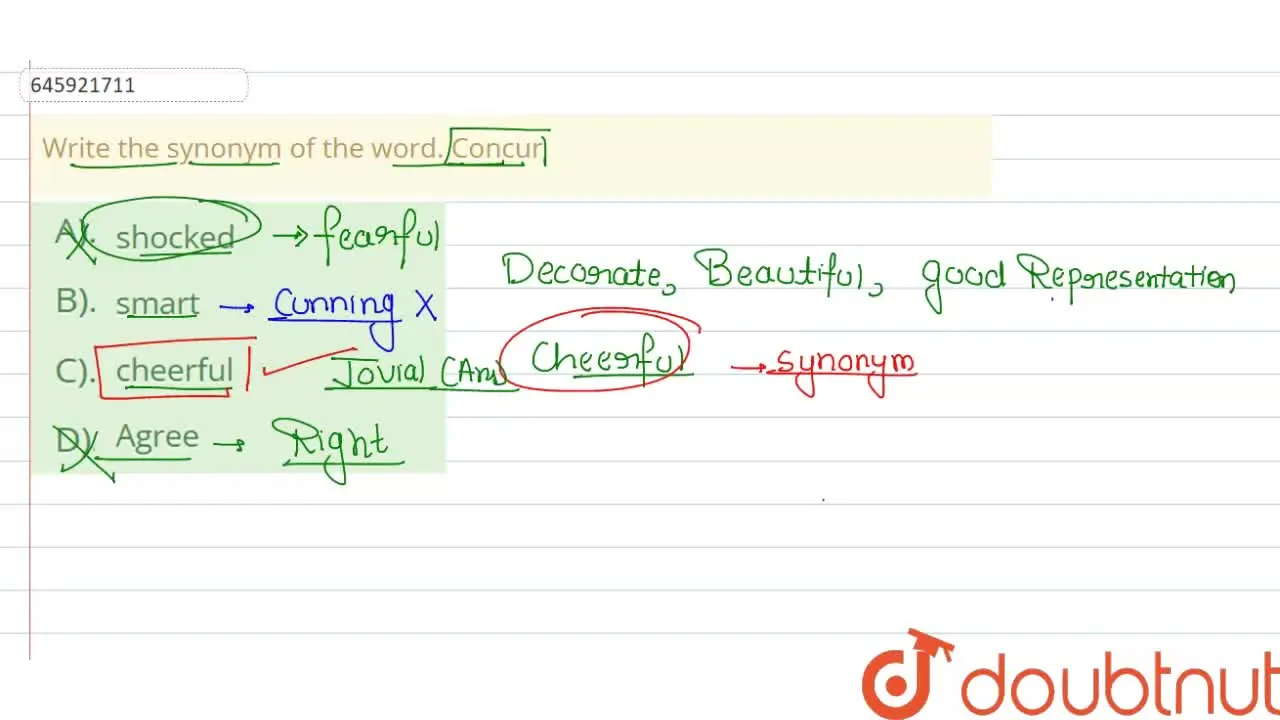 645921711
Write the synonym of the word. Concur
A). shocked → fearful
Decorate, Beautiful, good Representation,
B). smart → Cunning X
C). cheerful Jovial (Ans) Cheerful → synonym
D). Agree → Right
doubtnut